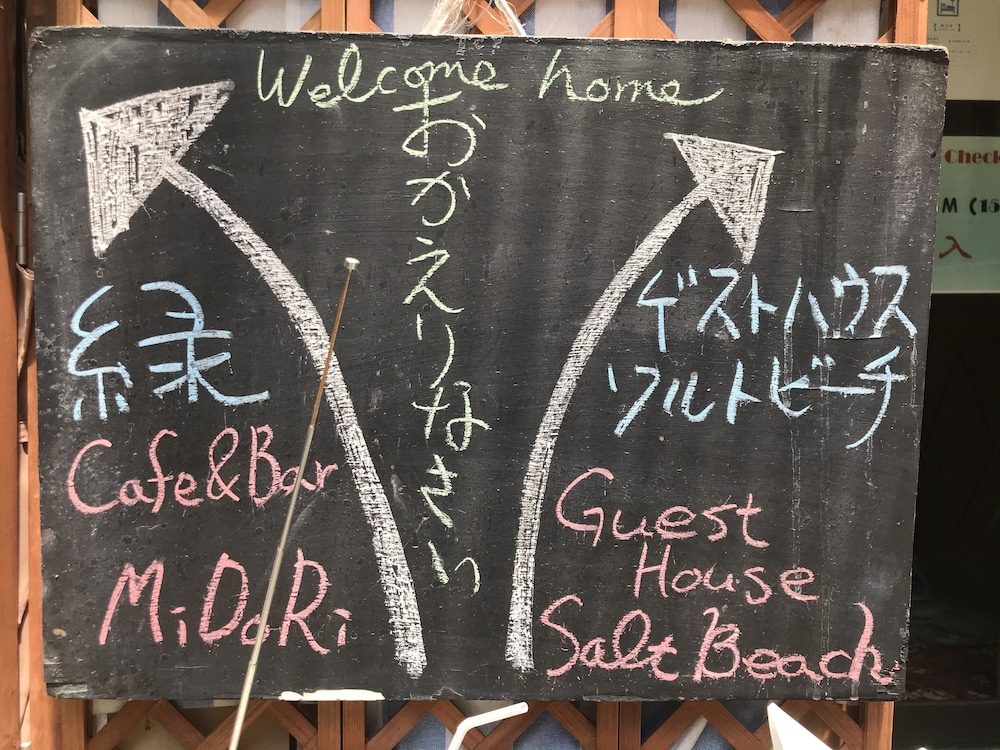 Welcome home
おかえりなさい
縁
Cafe&Bar
MiDoRi
ゲストハウス
ソルトビーチ
Guest
House
Salt Beach
Check
M (15
入